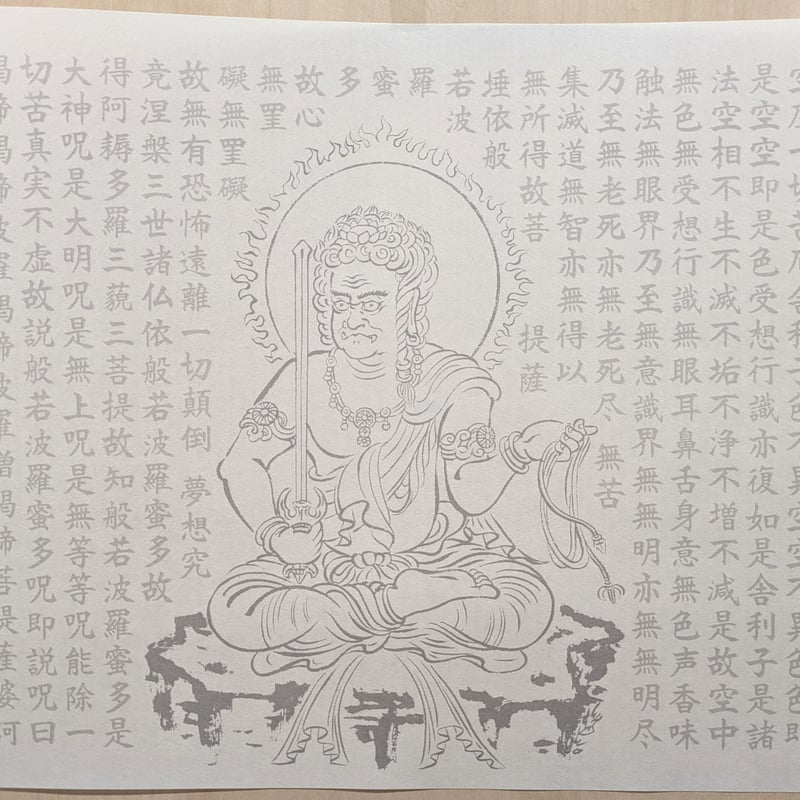 一切苦厄舎利子色不異空空不異色色即
是空空即是色受想行識亦復如是舎利子是諸
法空相不生不滅不垢不浄不増不減是故空中
無色無受想行識無眼耳鼻舌身意無色声香味
触法無眼界乃至無意識界無無明亦無無明尽
乃至無老死亦無老死尽 無苦
集滅道無智亦無得以
無所得故菩 提薩
埵依般
若波
羅
蜜
多
故心
無罣
礙無罣礙
故無有恐怖遠離一切顛倒 夢想究
竟涅槃三世諸仏依般若波羅蜜多故
得阿耨多羅三藐三菩提故知般若波羅蜜多是
大神呪是大明呪是無上呪是無等等呪能除一
切苦真実不虚故説般若波羅蜜多呪即説呪曰
羯諦羯諦波羅羯諦波羅僧羯諦菩提薩婆訶